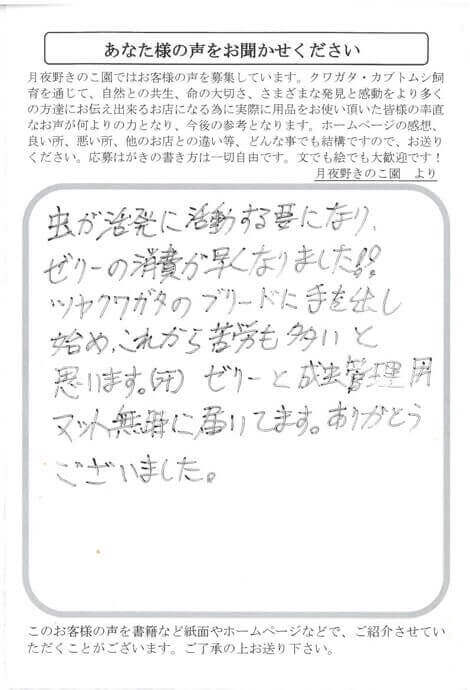 あなた様の声をお聞かせください
月夜野きのこ園ではお客様の声を募集しています。クワガタ・カブトムシ飼
育を通じて、自然との共生、命の大切さ、さまざまな発見と感動をより多く
の方達にお伝え出来るお店になる為に実際に用品をお使い頂いた皆様の率直
なお声が何よりの力となり、今後の参考となります。ホームページの感想、
良い所、悪い所、他のお店との違い等、どんな事でも結構ですので、お送り
ください。応募はがきの書き方は一切自由です。文でも絵でも大歓迎です！
月夜野きのこ園　より
虫が活発に活動する夏になり、
ゼリーの消費が早くなりました!!
ツヤクワガタのブリードに手を出し
始め、これから苦労も多いと
思います。ゼリーと成虫管理用
マット無事に届いてます。ありがとう
ございました。
このお客様の声を書籍など紙面やホームページなどで、ご紹介させてい
ただくことがございます。ご了承の上お送り下さい。